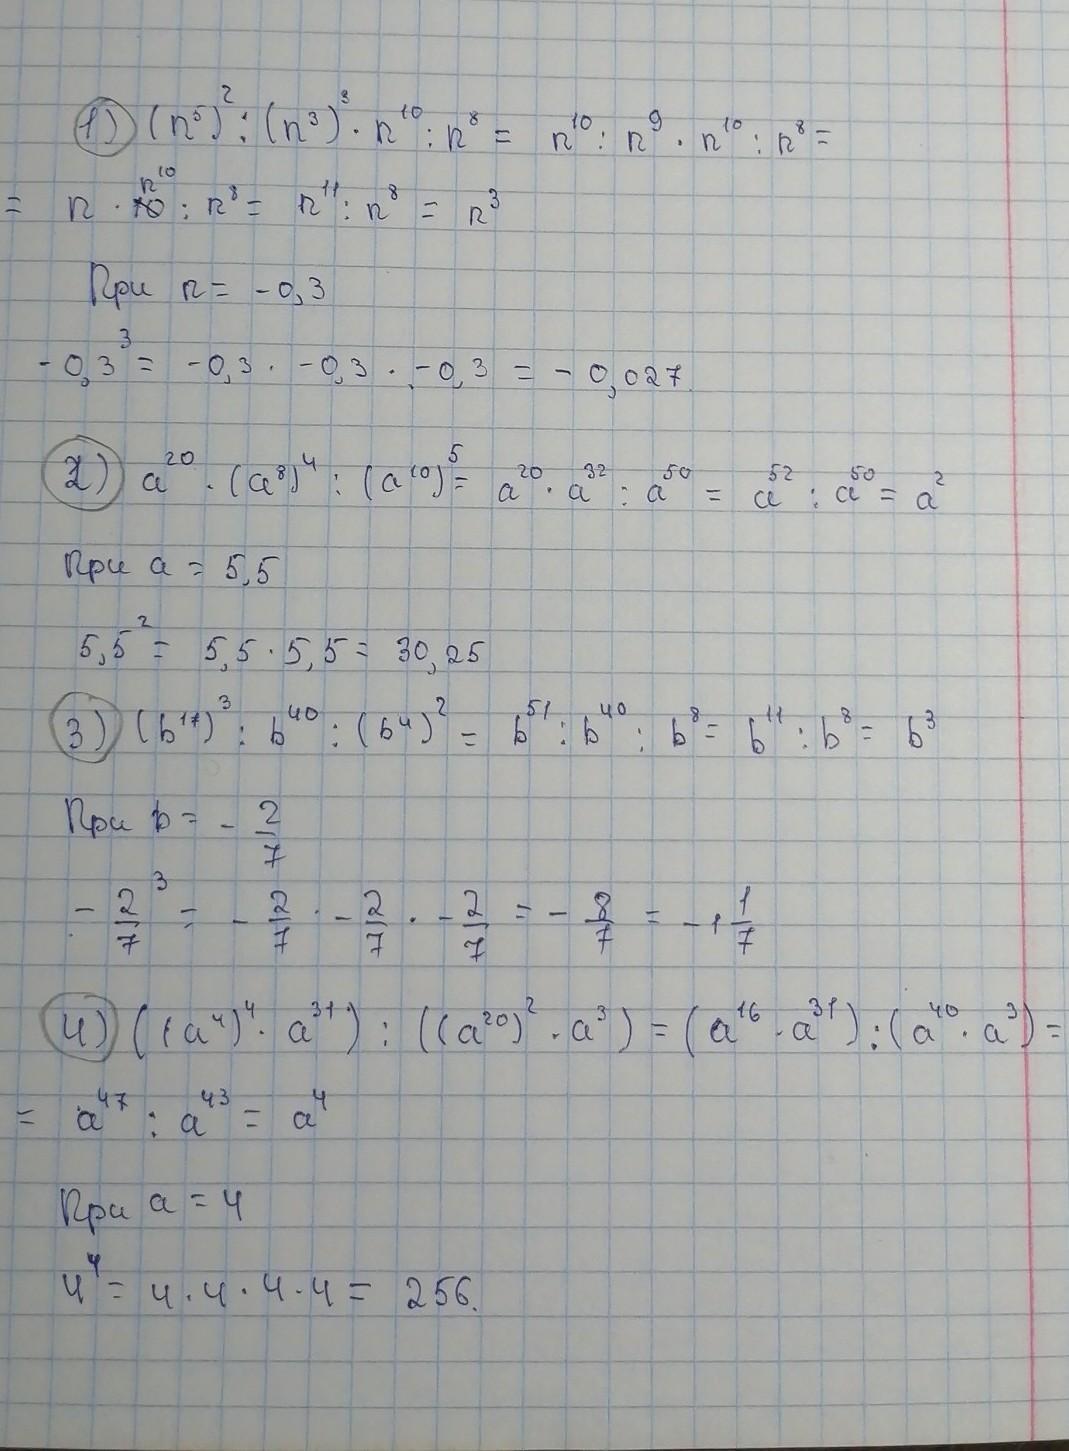 1) (n⁵)² : (n³)³ · n¹⁰ : n⁸ = n¹⁰ : n⁹ · n¹⁰ : n⁸ =
= n · n¹⁰ : n⁸ = n¹¹ : n⁸ = n³
При n = -0,3
-0,3³ = -0,3 · -0,3 · -0,3 = -0,027
2) a²⁰ · (a⁸)⁴ : (a¹⁰)⁵ = a²⁰ · a³² : a⁵⁰ = a⁵² : a⁵⁰ = a²
При a = 5,5
5,5² = 5,5 · 5,5 = 30,25
3) (b¹⁷)³ : b⁴⁰ : (b⁴)² = b⁵¹ : b⁴⁰ : b⁸ = b¹¹ : b⁸ = b³
При b = -2/7
-2/7³ = -2/7 · -2/7 · -2/7 = -8/7 = -1 1/7
4) ((a⁴)⁴ · a³¹) : ((a²⁰)² · a³) = (a¹⁶ · a³¹) : (a⁴⁰ · a³) =
= a⁴⁷ : a⁴³ = a⁴
При a = 4
4⁴ = 4 · 4 · 4 · 4 = 256.